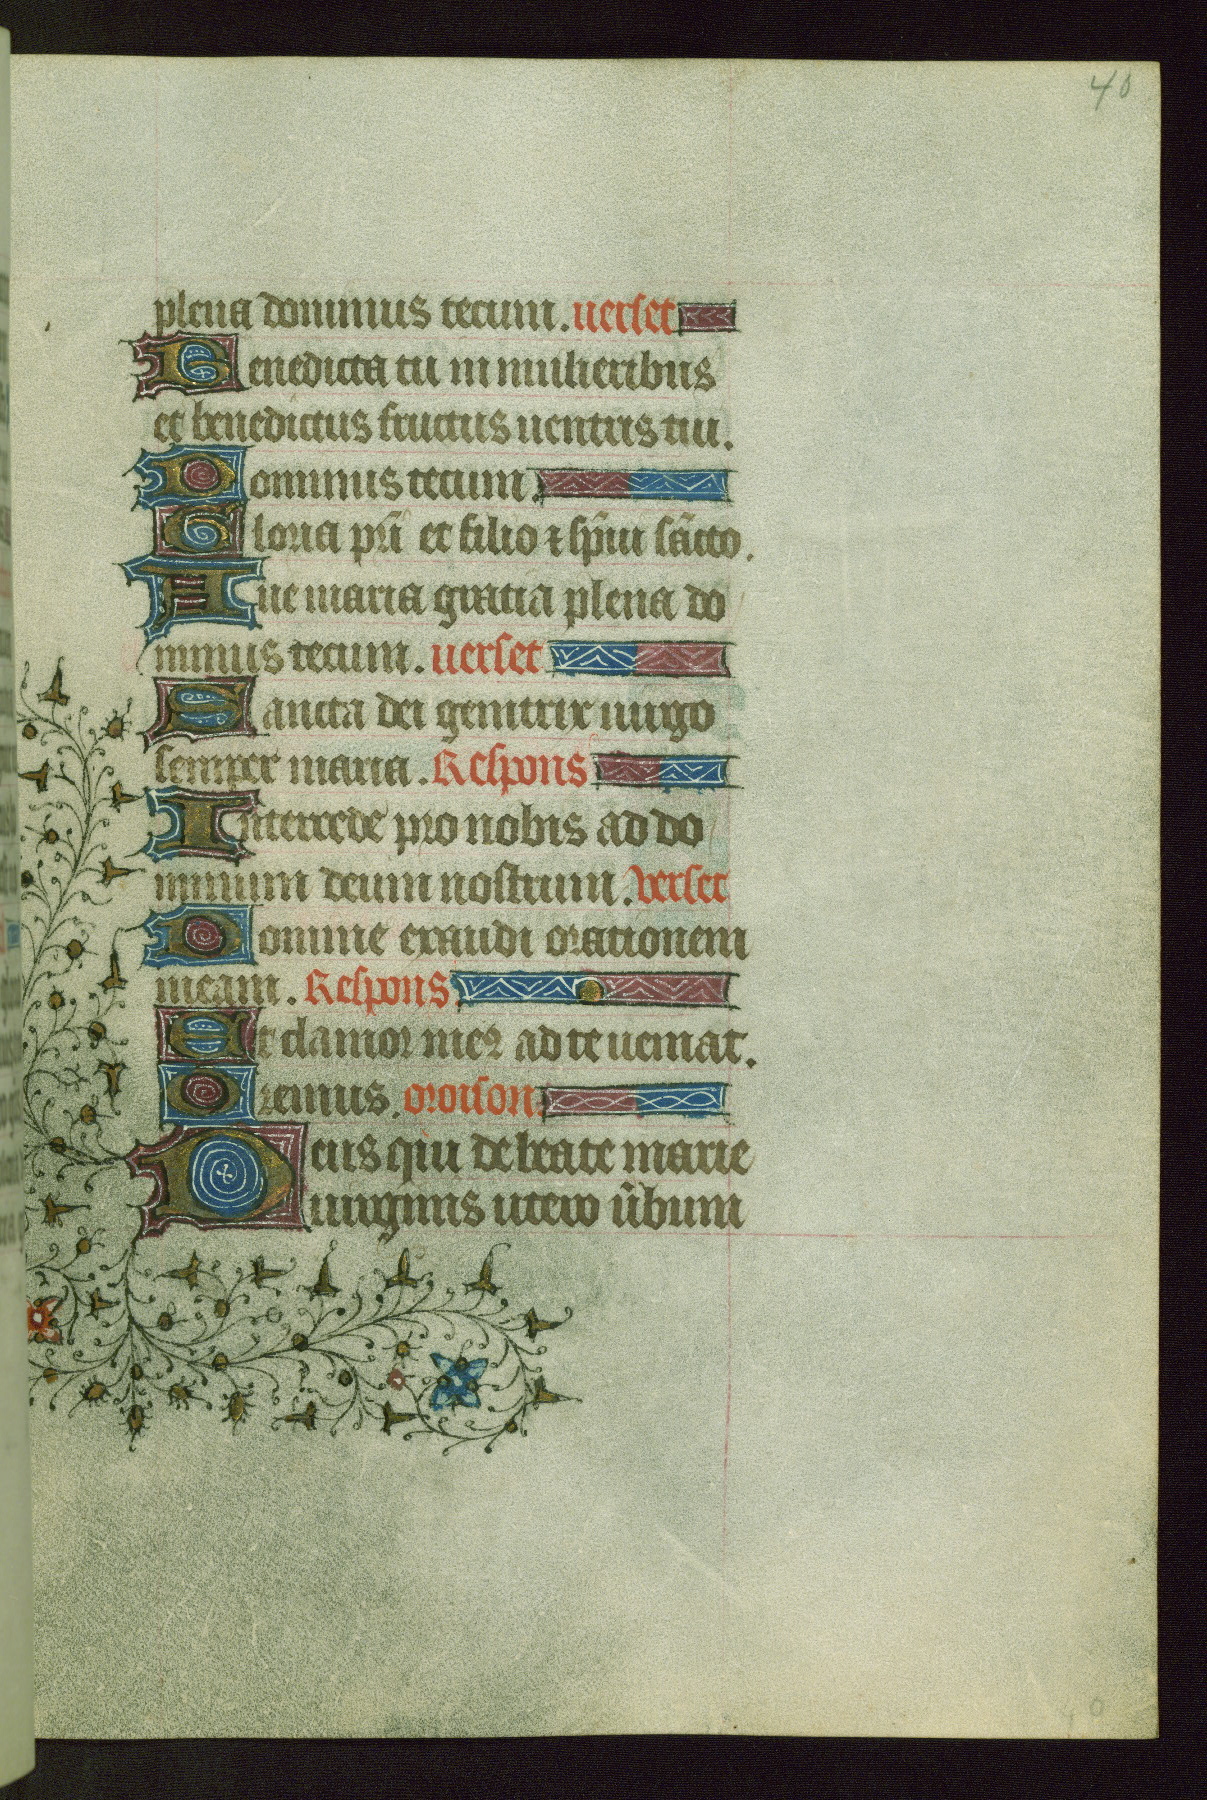 40
plena dominus tecum. uerset
Benedicta tu in mulieribus
et benedictus fructus uentris tui.
Dominus tecum.
Gloria pr̄i et filio ⁊ sp̄iui sācto.
Aue maria gratia plena do
minus tecum. uerset
Sancta dei genitrix uirgo
semper maria. Respons
Intercede pro nobis ad do
minum deum nostrum. verset
Domine exaudi orationem
meam. Respons
Et clamor meꝰ ad te ueniat.
Oremus. oroison
Deus qui de beate marie
uirginis utero ūbum